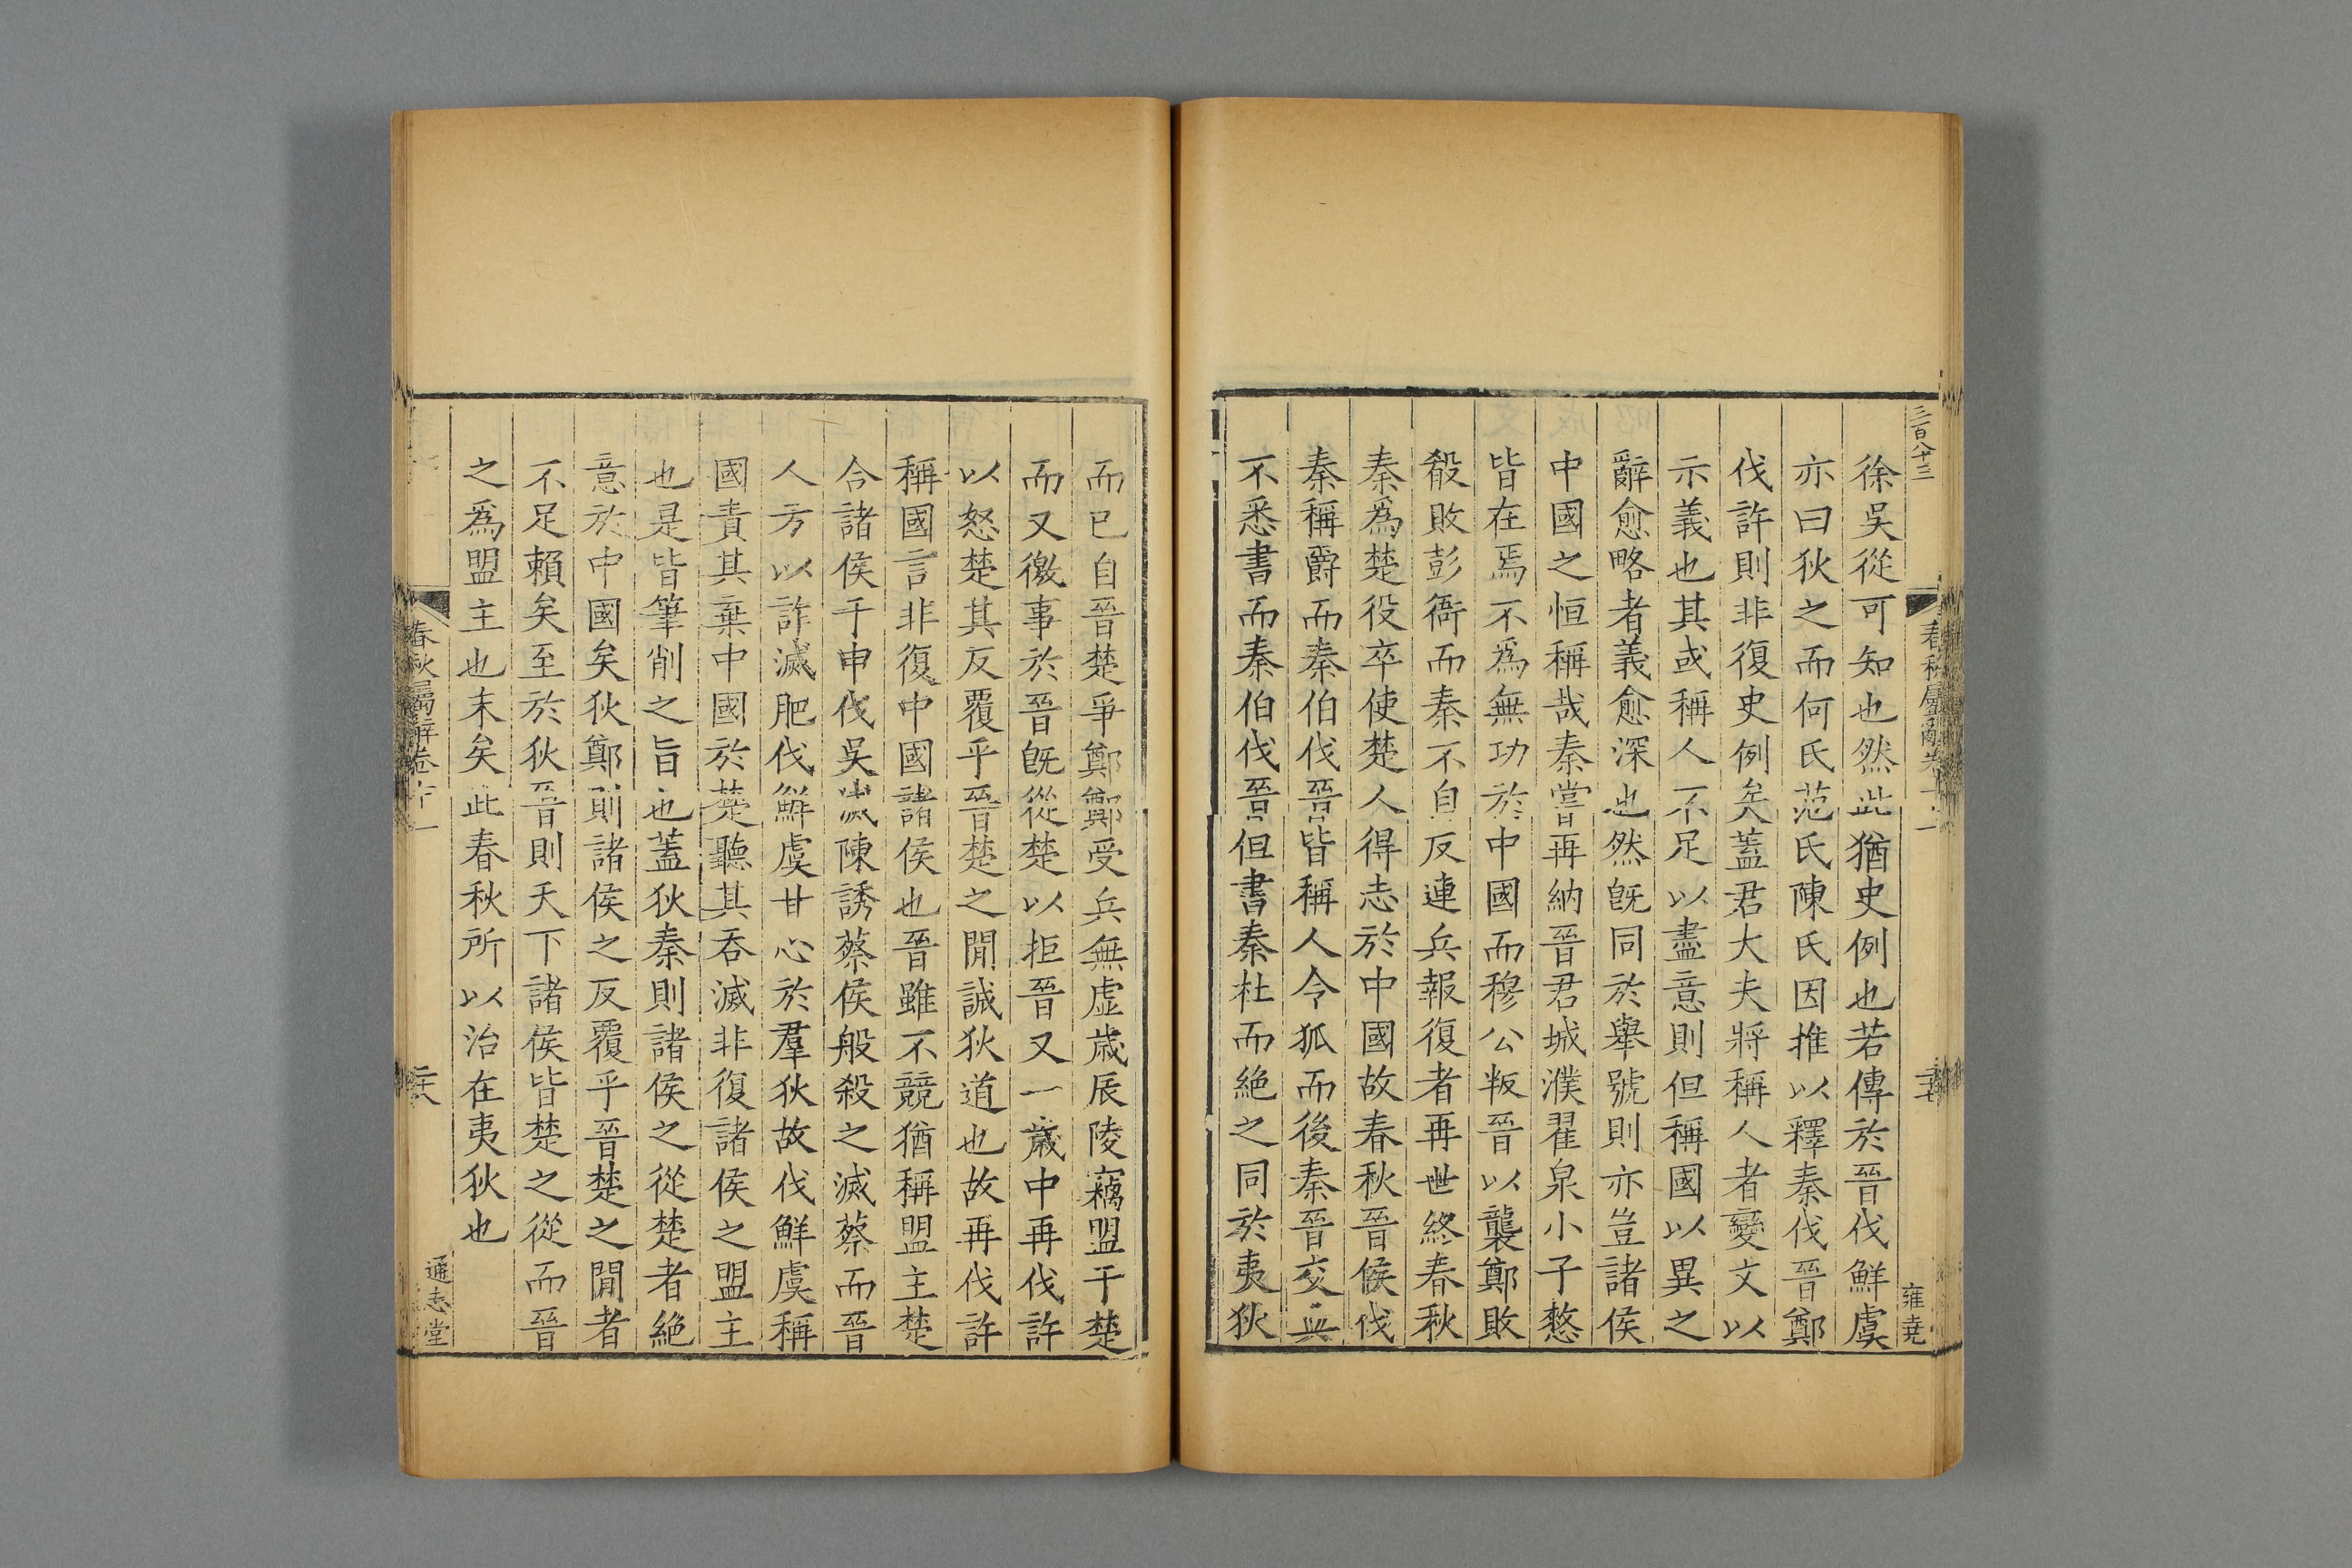 三百八十三
春秋屬辭卷十一
雍堯
徐吳從可知也然此猶史例也若傳於晉伐鮮虞
亦曰狄之而何氏范氏陳氏因推以釋秦伐晉鄭
伐許則非復史例矣蓋君大夫將稱人者變文以
示義也其或稱人不足以盡意則但稱國以異之
辭愈略者義愈深也然旣同於舉號則亦豈諸侯
中國之恒稱哉秦嘗再納晉君城濮翟泉小子憖
皆在焉不爲無功於中國而穆公叛晉以襲鄭敗
殽敗彭衙而秦不自反連兵報復者再世終春秋
秦爲楚役卒使楚人得志於中國故春秋晉侯伐
秦稱爵而秦伯伐晉皆稱人令狐而後秦晉交兵
不悉書而秦伯伐晉但書秦杜而絕之同於夷狄
而已自晉楚爭鄭鄭受兵無虛歲辰陵竊盟于楚
而又徼事於晉旣從楚以拒晉又一歲中再伐許
以怒楚其反覆乎晉楚之閒誠狄道也故再伐許
稱國言非復中國諸侯也晉雖不競猶稱盟主楚
合諸侯于申伐吳滅陳誘蔡侯般殺之滅蔡而晉
人方以詐滅肥伐鮮虞甘心於羣狄故伐鮮虞稱
國責其棄中國於楚聽其吞滅非復諸侯之盟主
也是皆筆削之旨也蓋狄秦則諸侯之從楚者絕
意於中國矣狄鄭則諸侯之反覆乎晉楚之閒者
不足賴矣至於狄晉則天下諸侯皆楚之從而晉
之爲盟主也末矣此春秋所以治在夷狄也
春秋屬辭卷十一
通志堂